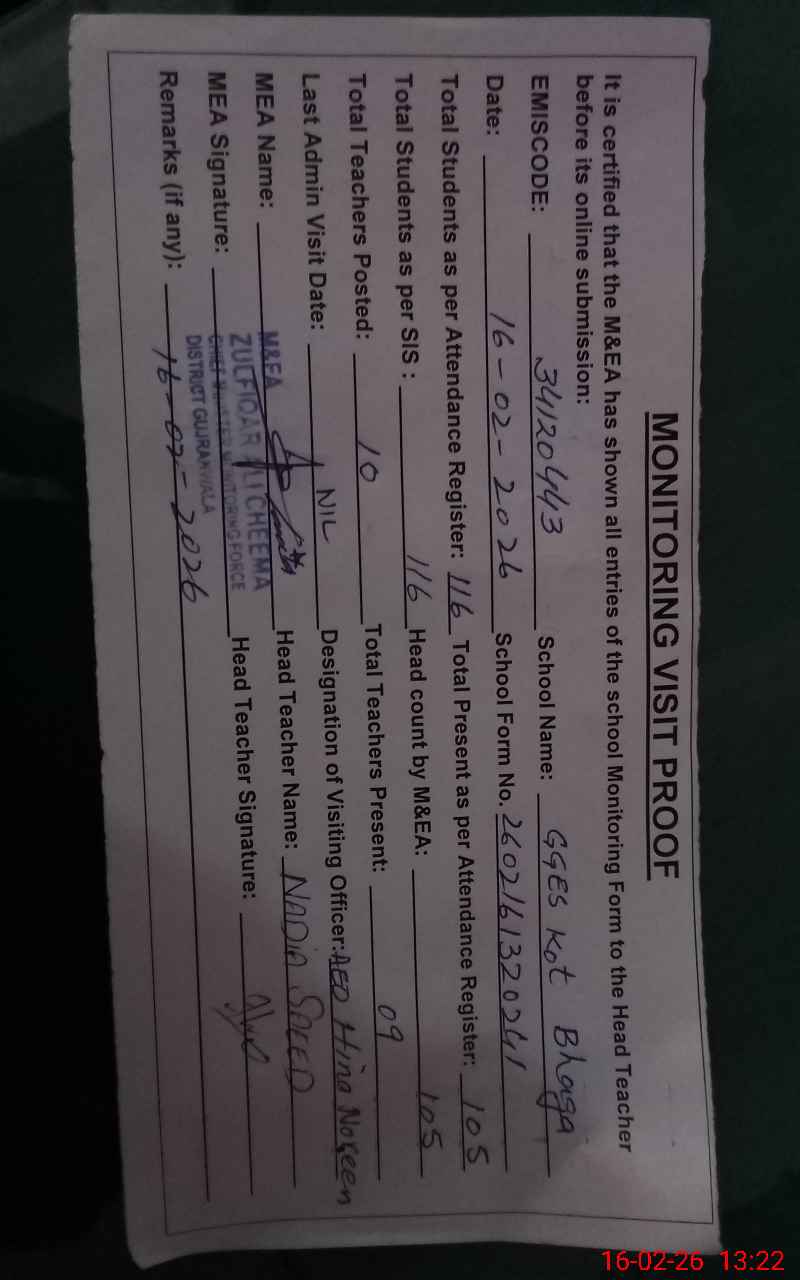 MONITORING VISIT PROOF
It is certified that the M&EA has shown all entries of the school Monitoring Form to the Head Teacher
before its online submission:
EMISCODE: 34120443 School Name: GGES Kot Bhaga
Date: 16-02-2026 School Form No. 2602161320241
Total Students as per Attendance Register: 116 Total Present as per Attendance Register: 105
Total Students as per SIS : 116 Head count by M&EA: 105
Total Teachers Posted: 10 Total Teachers Present: 09
Last Admin Visit Date: NIL Designation of Visiting Officer: AEO Hina Noreen
MEA Name: M&EA Head Teacher Name: NADIA SAEED
ZULFIQAR ALI CHEEMA
MEA Signature: CHIEF MINISTER MONITORING FORCE Head Teacher Signature:
DISTRICT GUJRANWALA
Remarks (if any): 16-02-2026
16-02-26 13:22